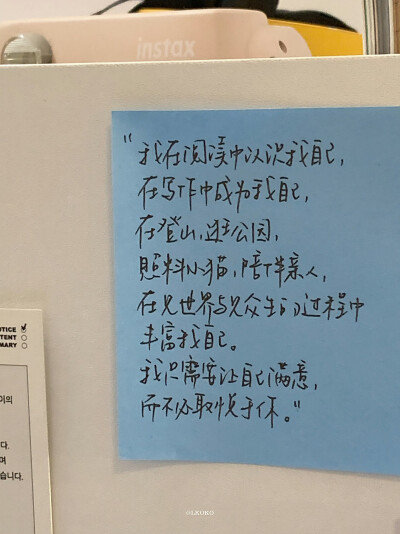 instax
“我在阅读中认识我自己,
在写作中成为我自己,
在登山,逛公园,
照料小猫,陪伴亲人,
在见世界与见众生的过程中
丰富我自己。
我只需要让自己满意,
而不必取悦于你。”
TICE
TENT
MARY
이의
다.
며
습니다.
@LKOKO